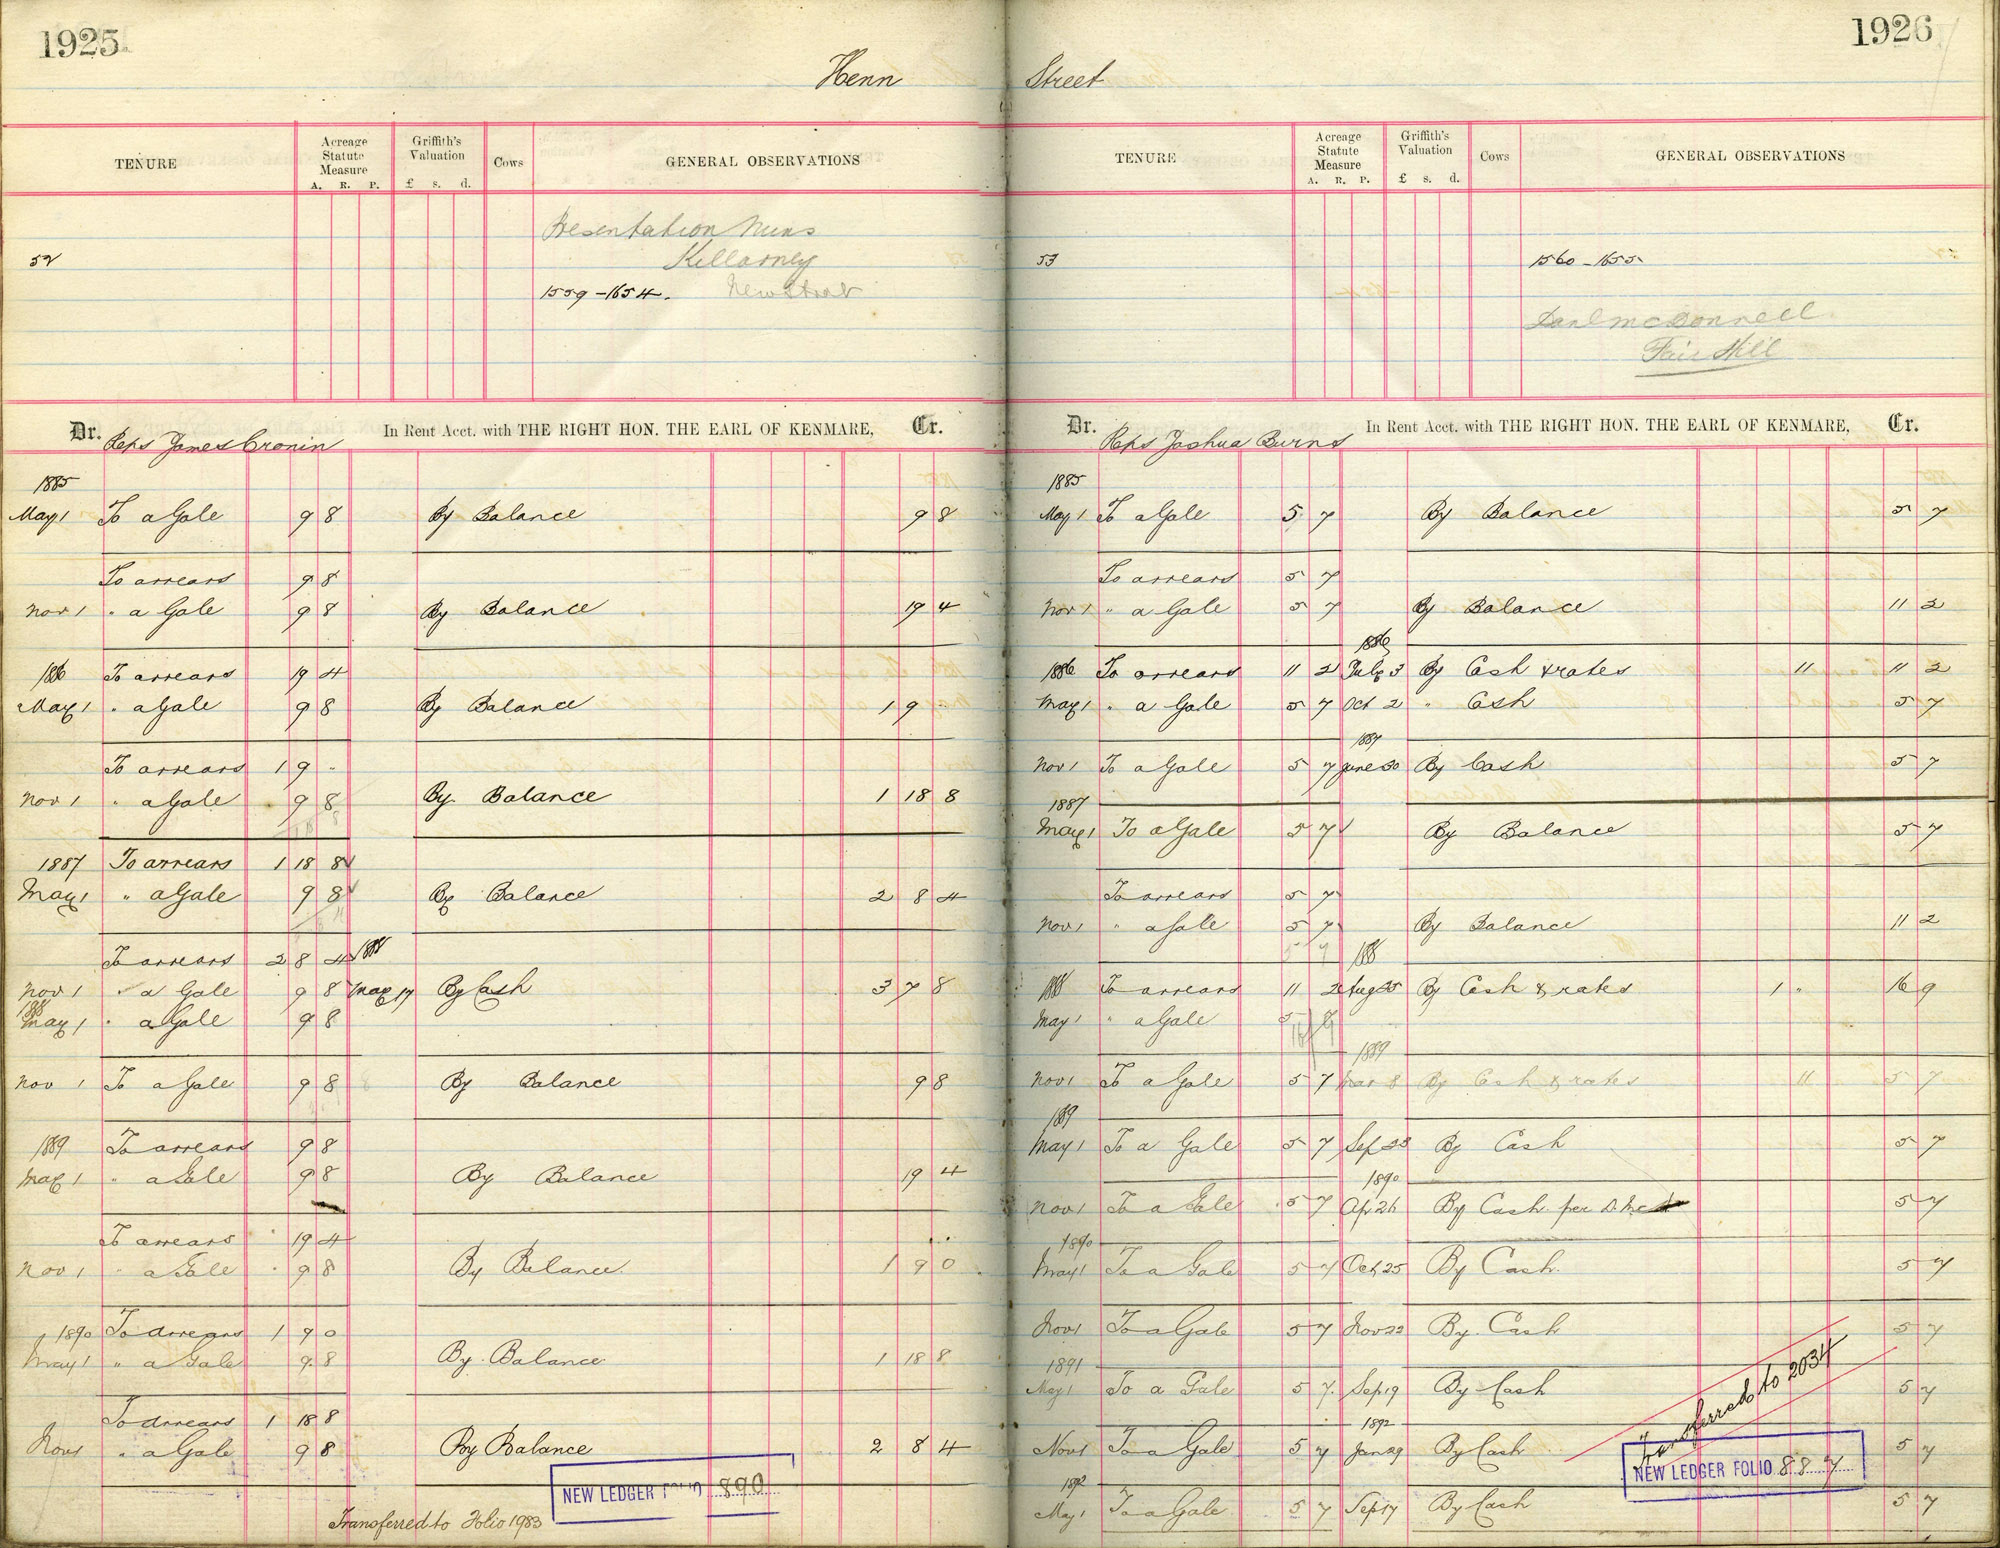 1925
Henn
TENURE
Acreage Statute Measure
A. R. P.
Griffith's Valuation
£ s. d.
Cows
GENERAL OBSERVATIONS
Presentation Nuns
Killarney
52
1559-1654. New Street
Dr. Reps James Cronin In Rent Acct. with THE RIGHT HON. THE EARL OF KENMARE, Cr.
1885
May 1 To a Gale 9 8 By Balance 9 8
To arrears 9 8
Nov 1 " a Gale 9 8 By Balance 19 4
1886 To arrears 19 4
May 1 " a Gale 9 8 By Balance 1 9 -
To arrears 1 9 -
Nov 1 " a Gale 9 8 By Balance 1 18 8
1887 To arrears 1 18 8
May 1 " a Gale 9 8 By Balance 2 8 4
To arrears 2 8 4 1888
Nov 1 " a Gale 9 8 May 17 By Cash 3 7 8
1888
May 1 " a Gale 9 8
Nov 1 To a Gale 9 8 By Balance 9 8
1889 To arrears 9 8
May 1 " a Gale 9 8 By Balance 19 4
To arrears 19 4
Nov 1 " a Gale 9 8 By Balance 1 9 0
1890 To arrears 1 9 0
May 1 " a Gale 9 8 By Balance 1 18 8
To arrears 1 18 8
Nov 1 " a Gale 9 8 By Balance 2 8 4
NEW LEDGER FOLIO 890
Transferred to Folio 1983
1926
Street
TENURE
Acreage Statute Measure
A. R. P.
Griffith's Valuation
£ s. d.
Cows
GENERAL OBSERVATIONS
53 1560-1655
Danl McDonnell
Fair Hill
Dr. Reps Joshua Burns In Rent Acct. with THE RIGHT HON. THE EARL OF KENMARE, Cr.
1885
May 1 To a Gale 5 7 By Balance 5 7
To arrears 5 7
Nov 1 " a Gale 5 7 By Balance 11 2
1886
1886 To arrears 11 2 July 3 By Cash & rates 11 11 2
May 1 " a Gale 5 7 Oct 2 " Cash 5 7
1887
Nov 1 To a Gale 5 7 June 30 By Cash 5 7
1887
May 1 To a Gale 5 7 By Balance 5 7
To arrears 5 7
Nov 1 " a Gale 5 7 By Balance 11 2
5 7 1888
1888 To arrears 11 2 Aug 25 By Cash & rates 1 " 16 9
May 1 " a Gale 5 7
16/9
1889
Nov 1 To a Gale 5 7 Mar 8 By Cash & rates 11 5 7
1889
May 1 To a Gale 5 7 Sep 28 By Cash 5 7
1890
Nov 1 To a Gale 5 7 Apr 26 By Cash per D. McD 5 7
1890
May 1 To a Gale 5 7 Oct 25 By Cash 5 7
Nov 1 To a Gale 5 7 Nov 22 By Cash 5 7
1891
May 1 To a Gale 5 7 Sep 19 By Cash 5 7
1892
Nov 1 To a Gale 5 7 Jan 29 By Cash 5 7
Transferred to 2034
NEW LEDGER FOLIO 887
1892
May 1 To a Gale 5 7 Sep 17 By Cash 5 7